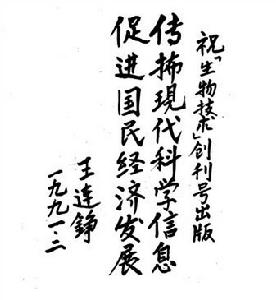 祝「生物技术」创刊号出版
传播現代科学信息
促进国民经济发展
王连铮
一九九一·二